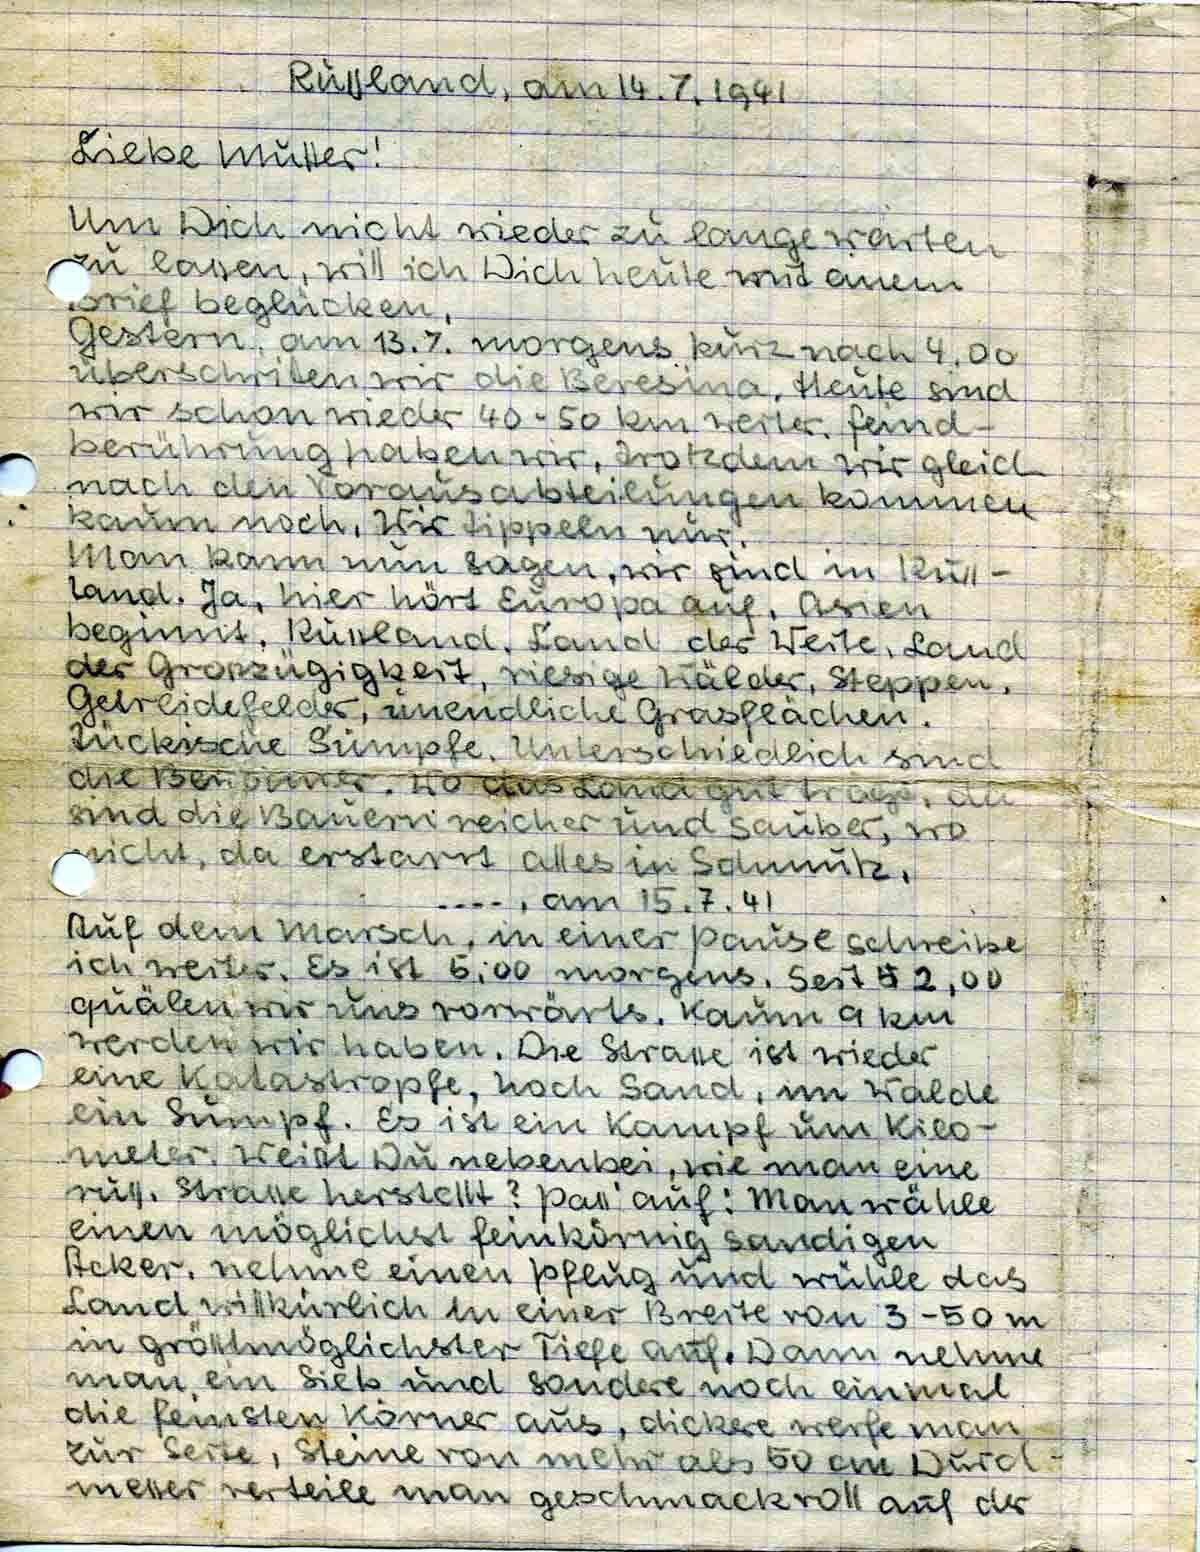 Russland, am 14.7.1941
Liebe Mutter!
Um Dich nicht wieder zu lange warten
zu lassen, will ich Dich heute mit einem
Brief beglücken.
Gestern, am 13.7. morgens kurz nach 4.00
überschritten wir die Beresina. Heute sind
wir schon wieder 40-50 km weiter. Feind-
berührung haben wir, trotzdem wir gleich
nach den Vorausabteilungen kommen
kaum noch. Wir tippeln nur.
Man kann nun sagen, wir sind in Russ-
land. Ja, hier hört Europa auf. Asien
beginnt. Russland, Land der Weite, Land
der Grosszügigkeit, riesige Wälder, Steppen,
Getreidefelder, unendliche Grasflächen.
Tückische Sümpfe. Unterschiedlich sind
die Bewohner. Wo das Land gut trägt, da
sind die Bauern reicher und sauber, wo
nicht, da erstarrt alles in Schmutz.
----, am 15.7.41
Auf dem Marsch, in einer Pause schreibe
ich weiter. Es ist 5,00 morgens. Seit 2,00
quälen wir uns vorwärts. Kaum 9 km
werden wir haben. Die Strasse ist wieder
eine Katastropfe, hoch Sand, im Walde
ein Sumpf. Es ist ein Kampf um Kilo-
meter. Weißt Du nebenbei, wie man eine
russ. Strasse herstellt? Pass' auf: Man wähle
einen möglichst feinkörnig sandigen
Acker, nehme einen Pflug und wühle das
Land willkürlich in einer Breite von 3-50 m
in grösstmöglichster Tiefe auf. Dann nehme
man ein Sieb und sondere noch einmal
die feinsten Körner aus, dickere werfe man
zur Seite, Steine von mehr als 50 cm Durch-
messer verteile man geschmackvoll auf der